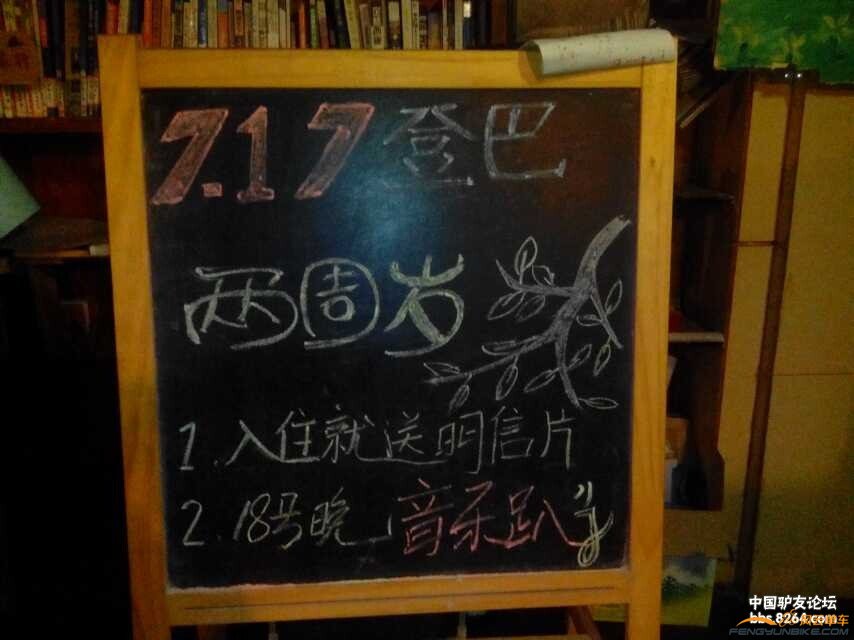 7.17 登巴
两周岁
1. 入住就送明信片
2. 18号晚 音乐趴
中国驴友论坛
bbs.8264.com
风云单车
FENGYUNBIKE.COM